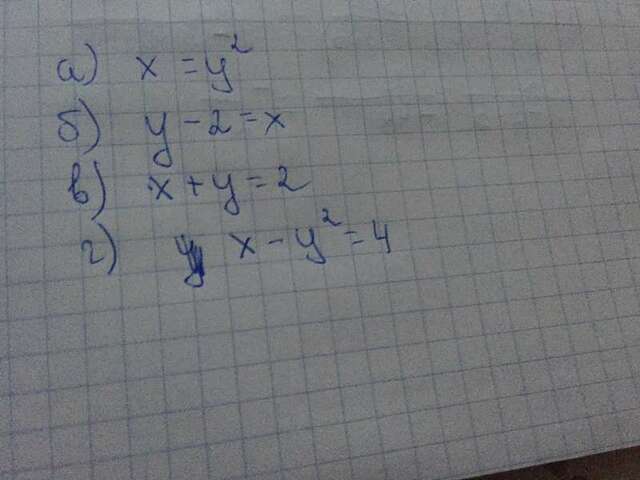 а) x = y²
б) y - 2 = x
в) x + y = 2
г) x - y² = 4